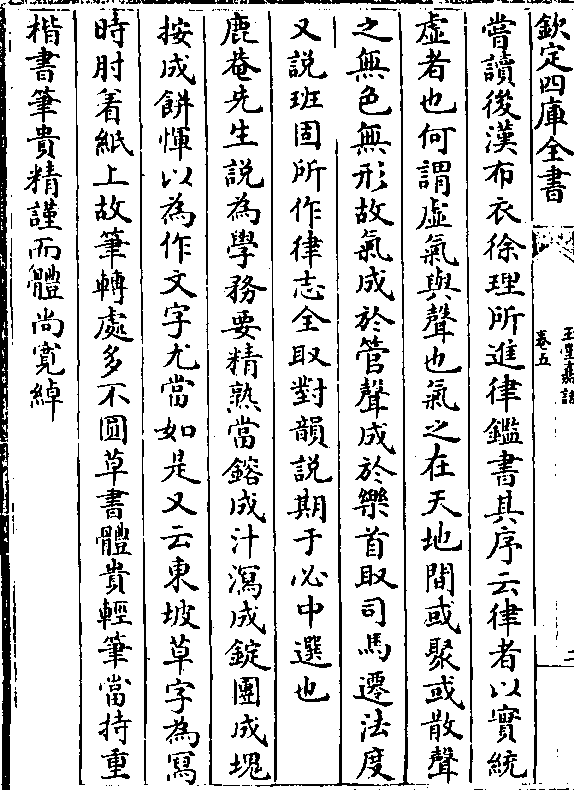 欽定四庫全書
玉堂嘉話
卷五
二
嘗讀後漢布衣徐理所進律鑑書其序云律者以實統
虚者也何謂虚氣與聲也氣之在天地間或聚或散聲
之無色無形故氣成於管聲成於樂首取司馬遷法度
又說班固所作律志全取對韻說期于必中選也
鹿菴先生說為學務要精熟當鎔成汁瀉成錠團成塊
按成餅惲以為作文字尤當如是又云東坡草字為寫
時肘着紙上故筆轉處多不圓草書體貴輕筆當持重
楷書筆貴精謹而體尚寬綽